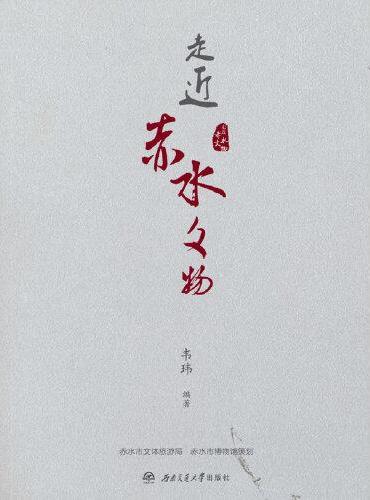 走近
赤水文物
韦玮
编著
赤水市文体旅游局 赤水市博物馆策划
西南交通大学出版社